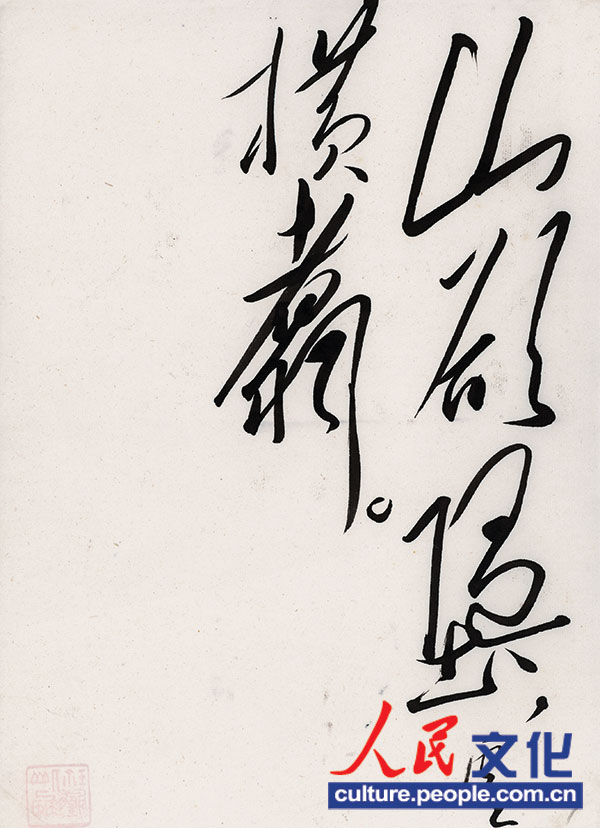 山欲墮，雲
横翥。
人民文化
culture.people.com.cn